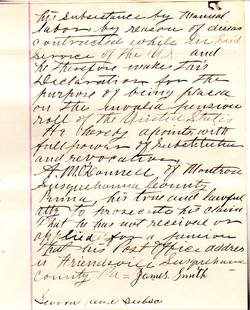 his Subsistence by Manual
labor by reason of diseas
contracted while in said
service of the U.S. and
he therefore makes this
Declaration for the
purpose of being placed
on the invalid pension
roll of the United States
He hereby apoints with
full power of Substitution
and revocation
A. McDonnell of Montrose
Susquehanna County
Penna, his true and lawful
atty to prosecute his claim
That he has not received or
applied for a pension
That his Post Office address
is Friendsville Susquehanna
county Pa James Smith
Sworn and Subsc